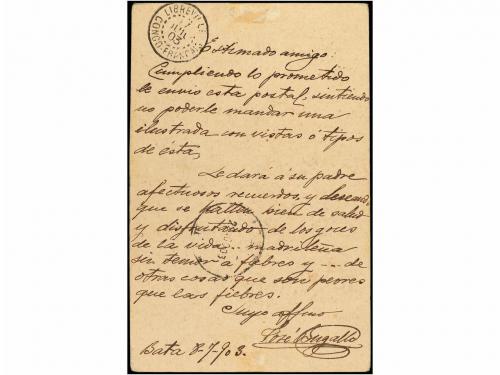 LIBREVILLE
JUIL
03
CONGO-FRANÇAIS
Estimado amigo:
Cumpliendo lo prometido
le envio esta postal, sintiendo
no poderle mandar una
ilustrada con vistas ó tipos
de ésta,
Le dará á su padre
afectuosos recuerdos, y deseando
que se hallen bien de salud
y disfrutando de los goces
de la vida... madrileña
sin temer á fiebres y ... de
otras cosas que son peores
que las fiebres.
Suyo affmo
José Bugallo
Bata 8-7-903.